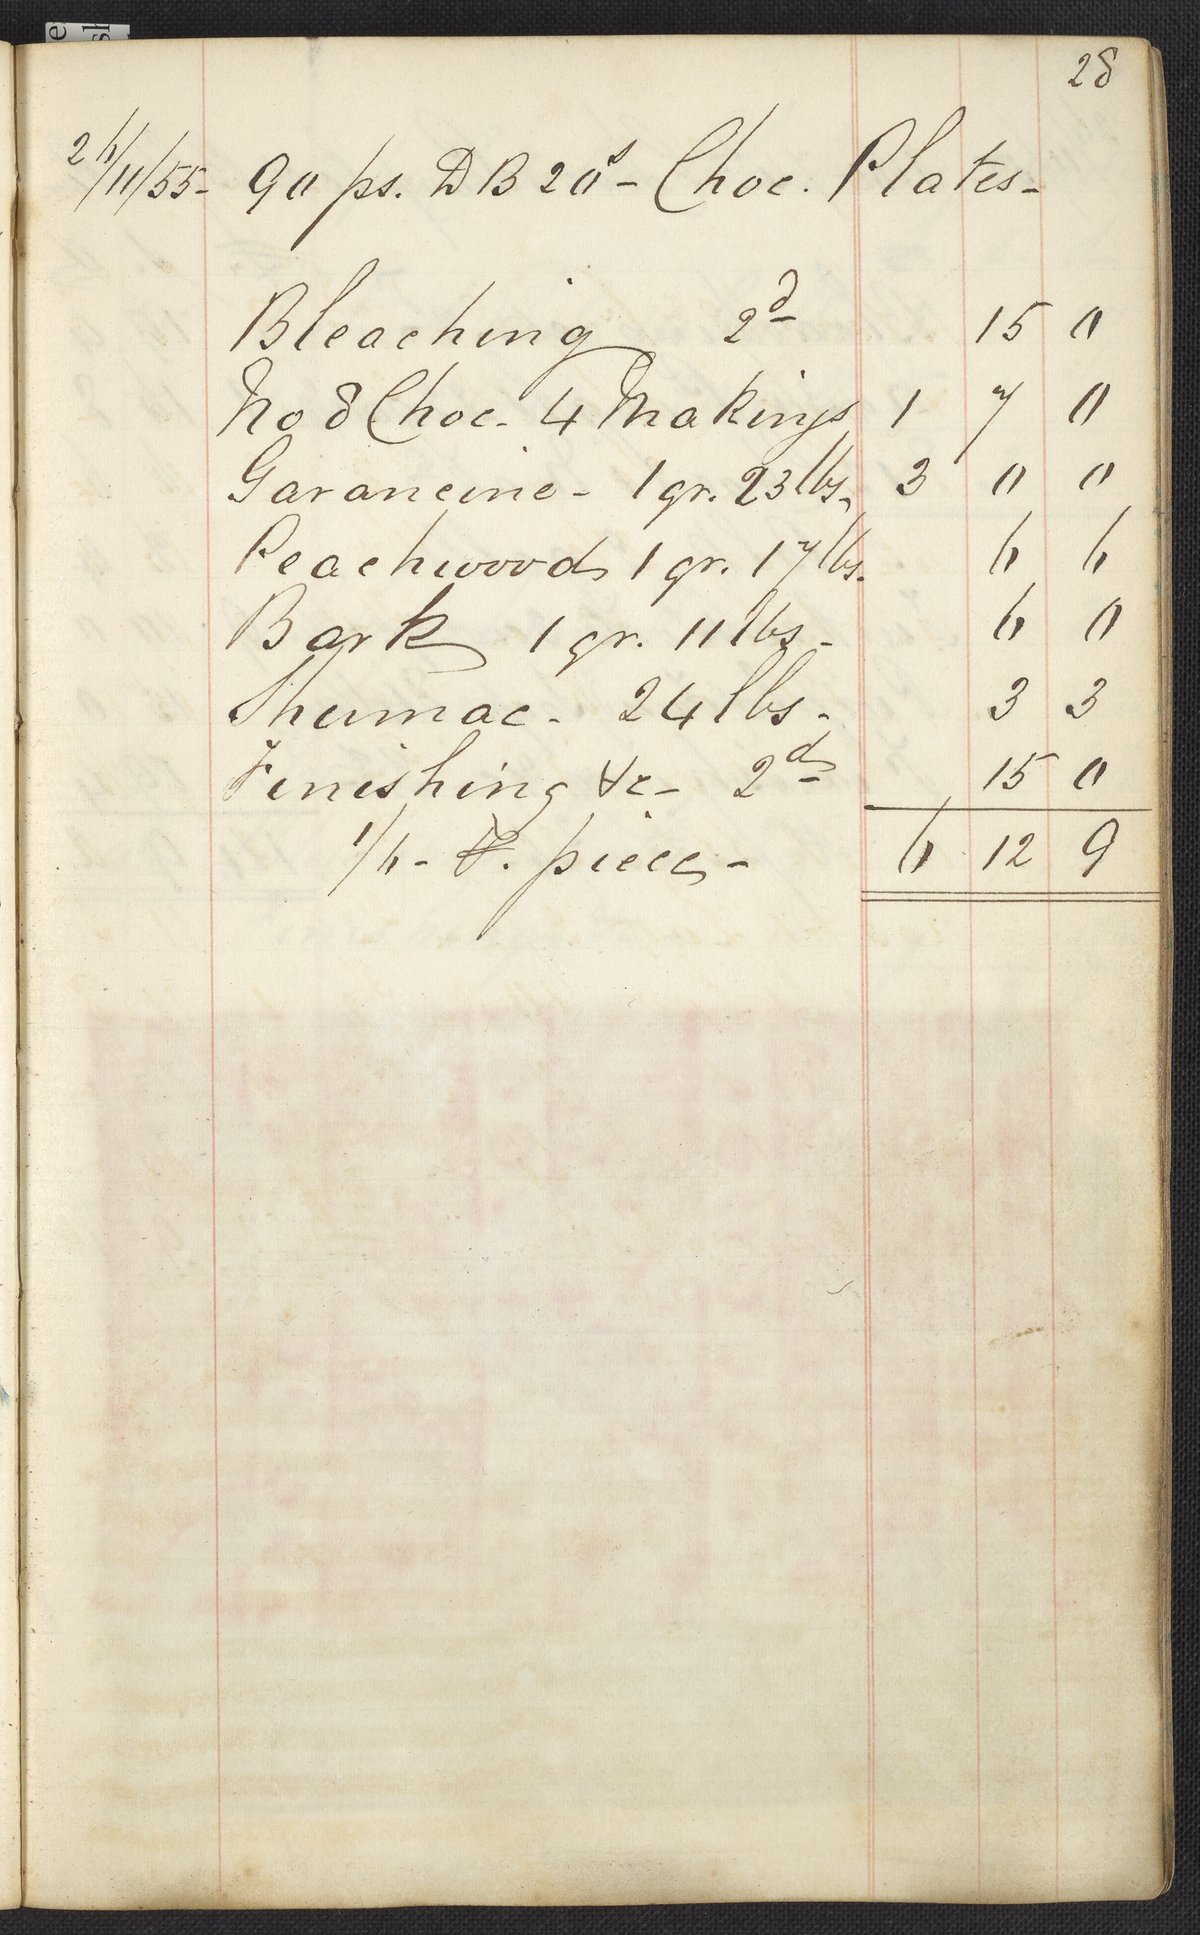 28
26/11/55- 90 ps. DB 20s - Choc. Plates-
Bleaching 2d 15 0
No 8 Choc. 4 Makings 1 7 0
Garancine - 1 qr. 23 lbs. 3 0 0
Peachwood 1 qr. 17 lbs. 6 6
Bark 1 qr. 11 lbs - 6 0
Shumac - 24 lbs - 3 3
Finishing &c - 2d 15 0
1/6 - P. piece - 6 12 9